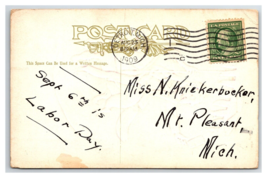 POST CARD
This Space Can Be Used for a Written Message.
1909
Sept 6th is
Labor Day.
Miss N. Knickerbocker,
Mt. Pleasant
Mich.